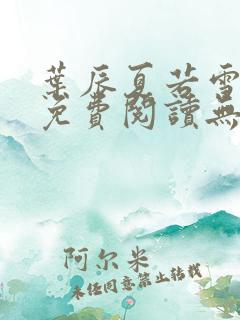 葉辰夏若雪
免費閱讀無
阿尔米
未经同意禁止转载